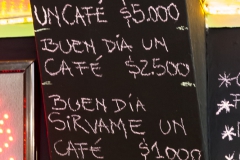 UN CAFÉ $5.000
BUEN DÍA UN
CAFÉ $2.500
BUEN DÍA
SIRVAME UN
CAFÉ $1000